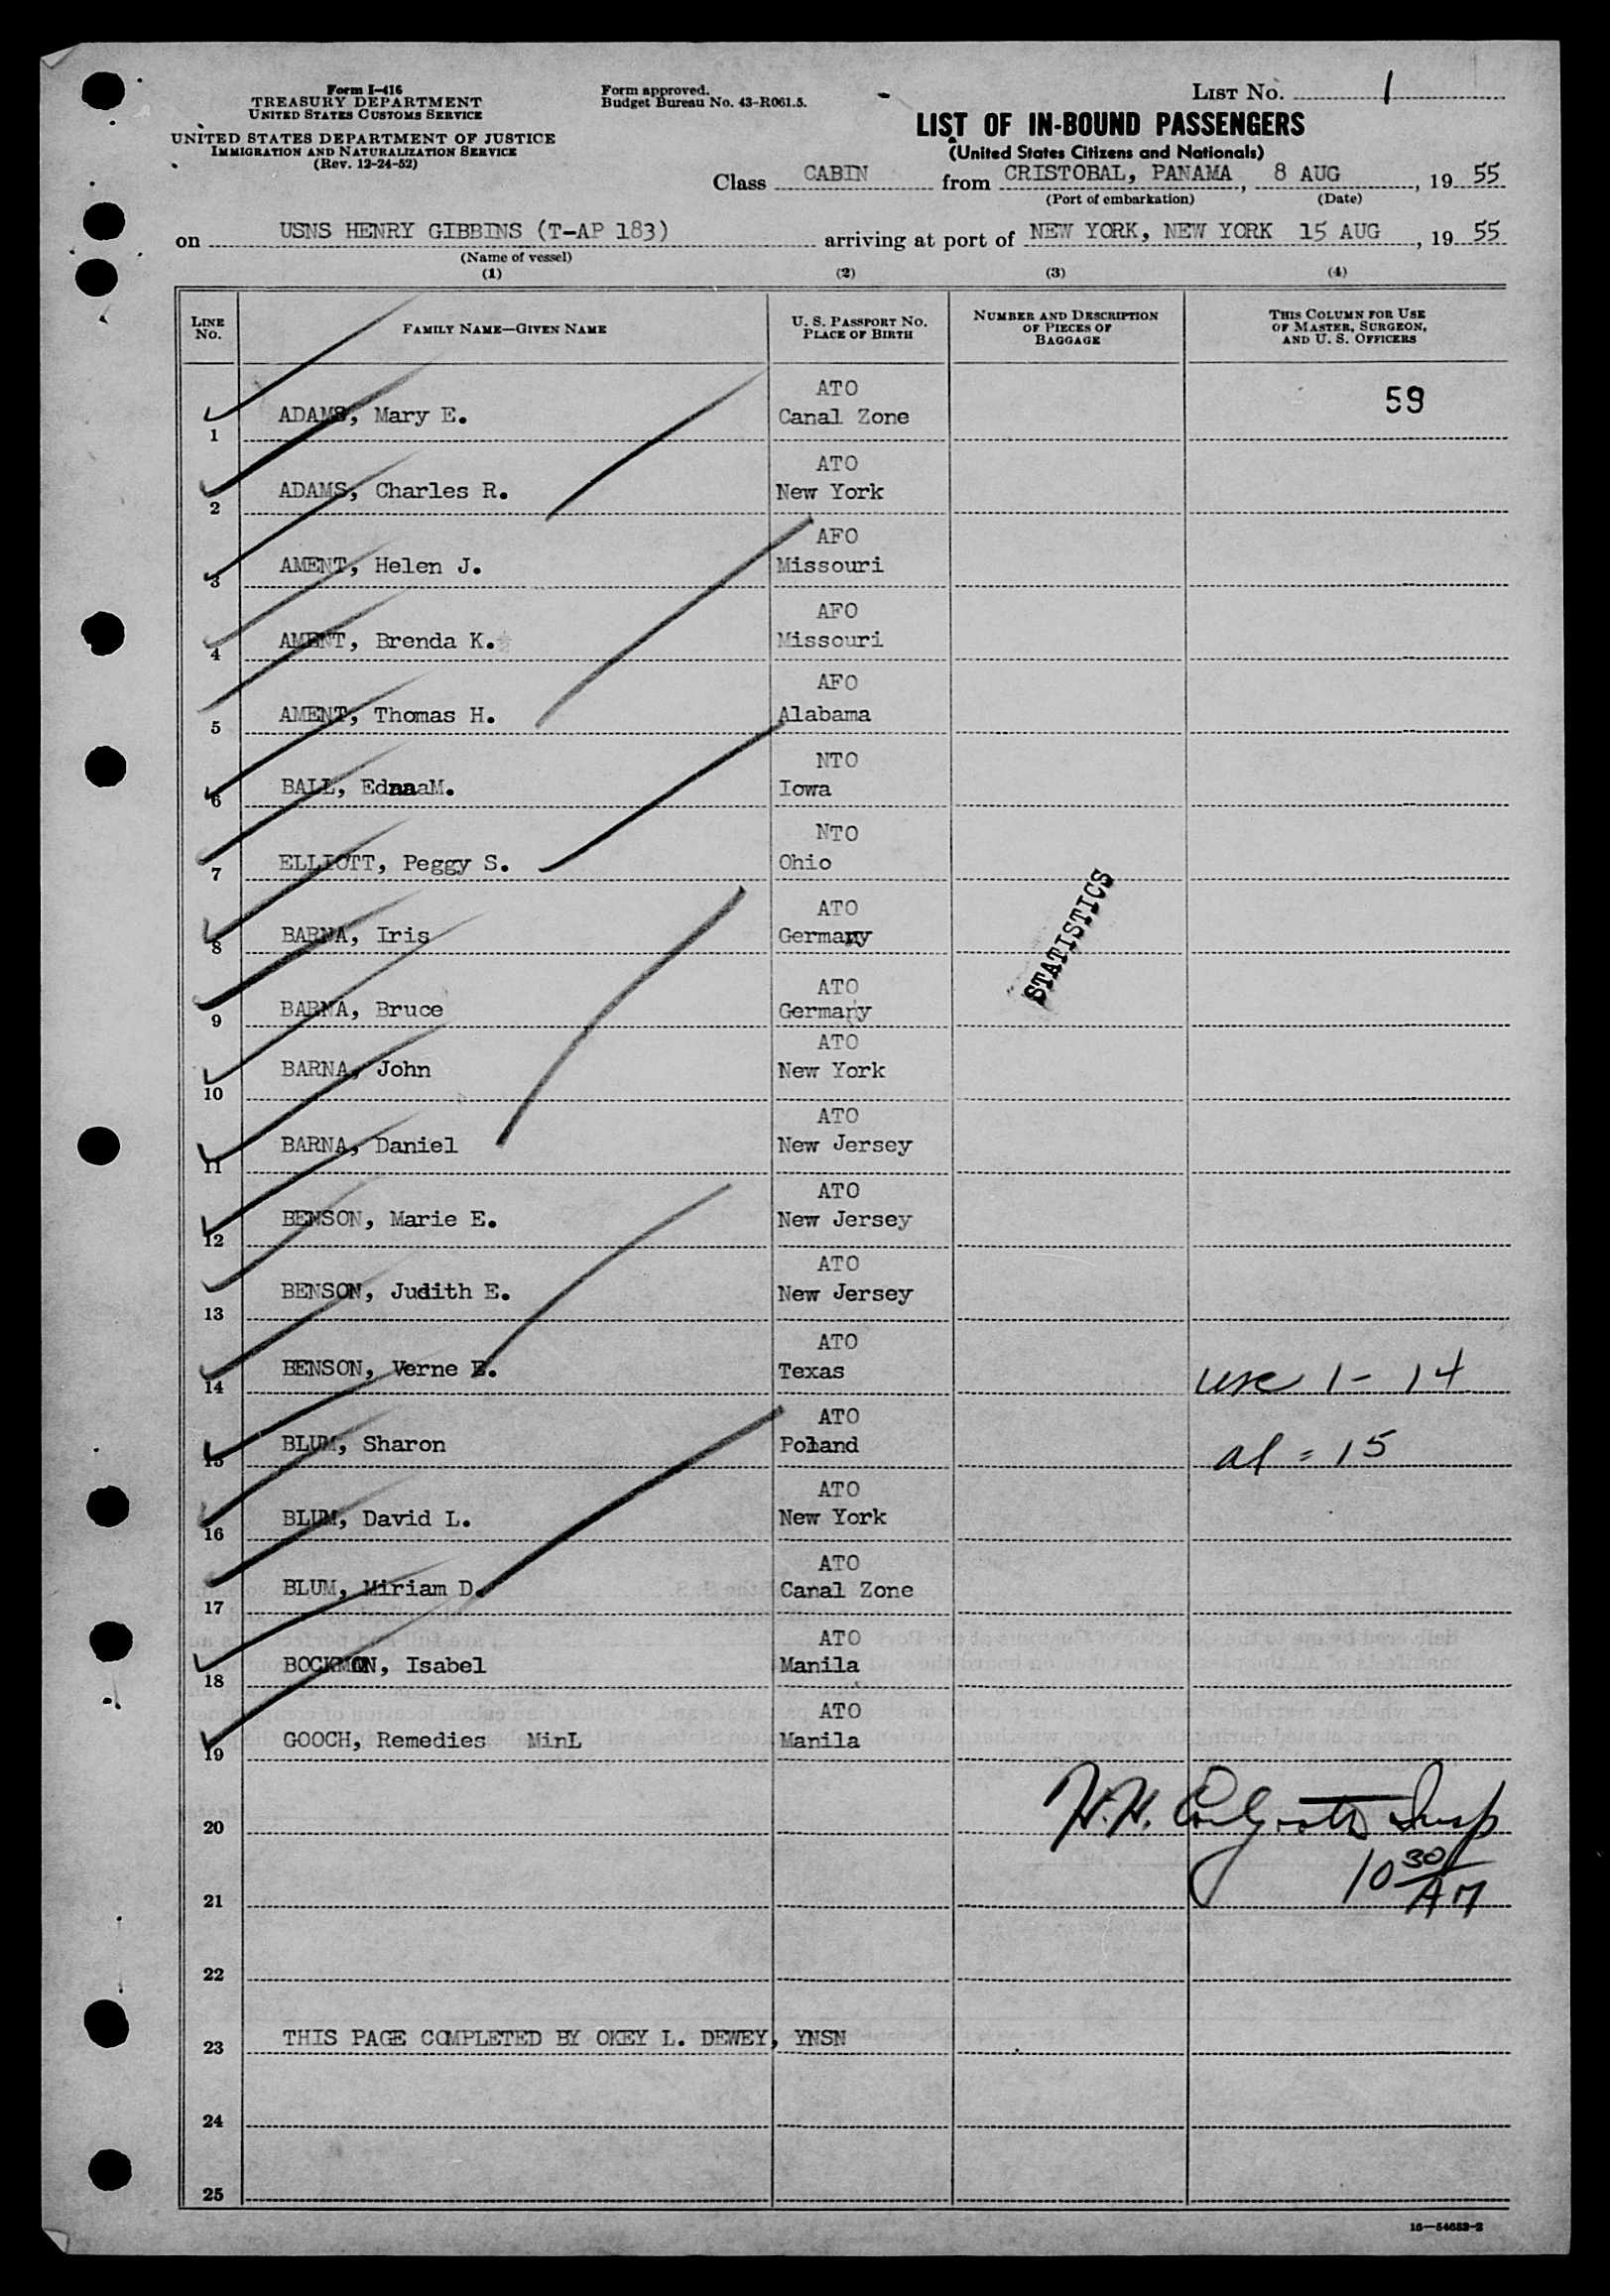 Form I-416
TREASURY DEPARTMENT
UNITED STATES CUSTOMS SERVICE
UNITED STATES DEPARTMENT OF JUSTICE
IMMIGRATION AND NATURALIZATION SERVICE
(Rev. 12-24-52)
Form approved.
Budget Bureau No. 43-R061.5.
LIST NO. 1
LIST OF IN-BOUND PASSENGERS
(United States Citizens and Nationals)
Class CABIN from CRISTOBAL, PANAMA, 8 AUG, 19 55
(Port of embarkation) (Date)
on USNS HENRY GIBBINS (T-AP 183) arriving at port of NEW YORK, NEW YORK 15 AUG, 19 55
(Name of vessel)
(1) (2) (3) (4)
LINE NO. FAMILY NAME—GIVEN NAME U. S. PASSPORT NO. PLACE OF BIRTH NUMBER AND DESCRIPTION OF PIECES OF BAGGAGE THIS COLUMN FOR USE OF MASTER, SURGEON, AND U. S. OFFICERS
ATO 59
1 ADAMS, Mary E. Canal Zone
ATO
2 ADAMS, Charles R. New York
AFO
3 AMENT, Helen J. Missouri
AFO
4 AMENT, Brenda K. Missouri
AFO
5 AMENT, Thomas H. Alabama
NTO
6 BALL, EdnaaM. Iowa
NTO
7 ELLIOTT, Peggy S. Ohio
ATO
8 BARNA, Iris Germany
STATISTICS
ATO
9 BARNA, Bruce Germany
ATO
10 BARNA, John New York
ATO
11 BARNA, Daniel New Jersey
ATO
12 BENSON, Marie E. New Jersey
ATO
13 BENSON, Judith E. New Jersey
ATO
14 BENSON, Verne E. Texas usc 1 - 14
ATO
15 BLUM, Sharon Poland al = 15
ATO
16 BLUM, David L. New York
ATO
17 BLUM, Miriam D. Canal Zone
ATO
18 BOCKMON, Isabel Manila
ATO
19 GOOCH, Remedies MinL Manila
20 H.H. Insp
21 10 30 AM
22
23 THIS PAGE COMPLETED BY OKEY L. DEWEY, YNSN
24
25
16—54652-2